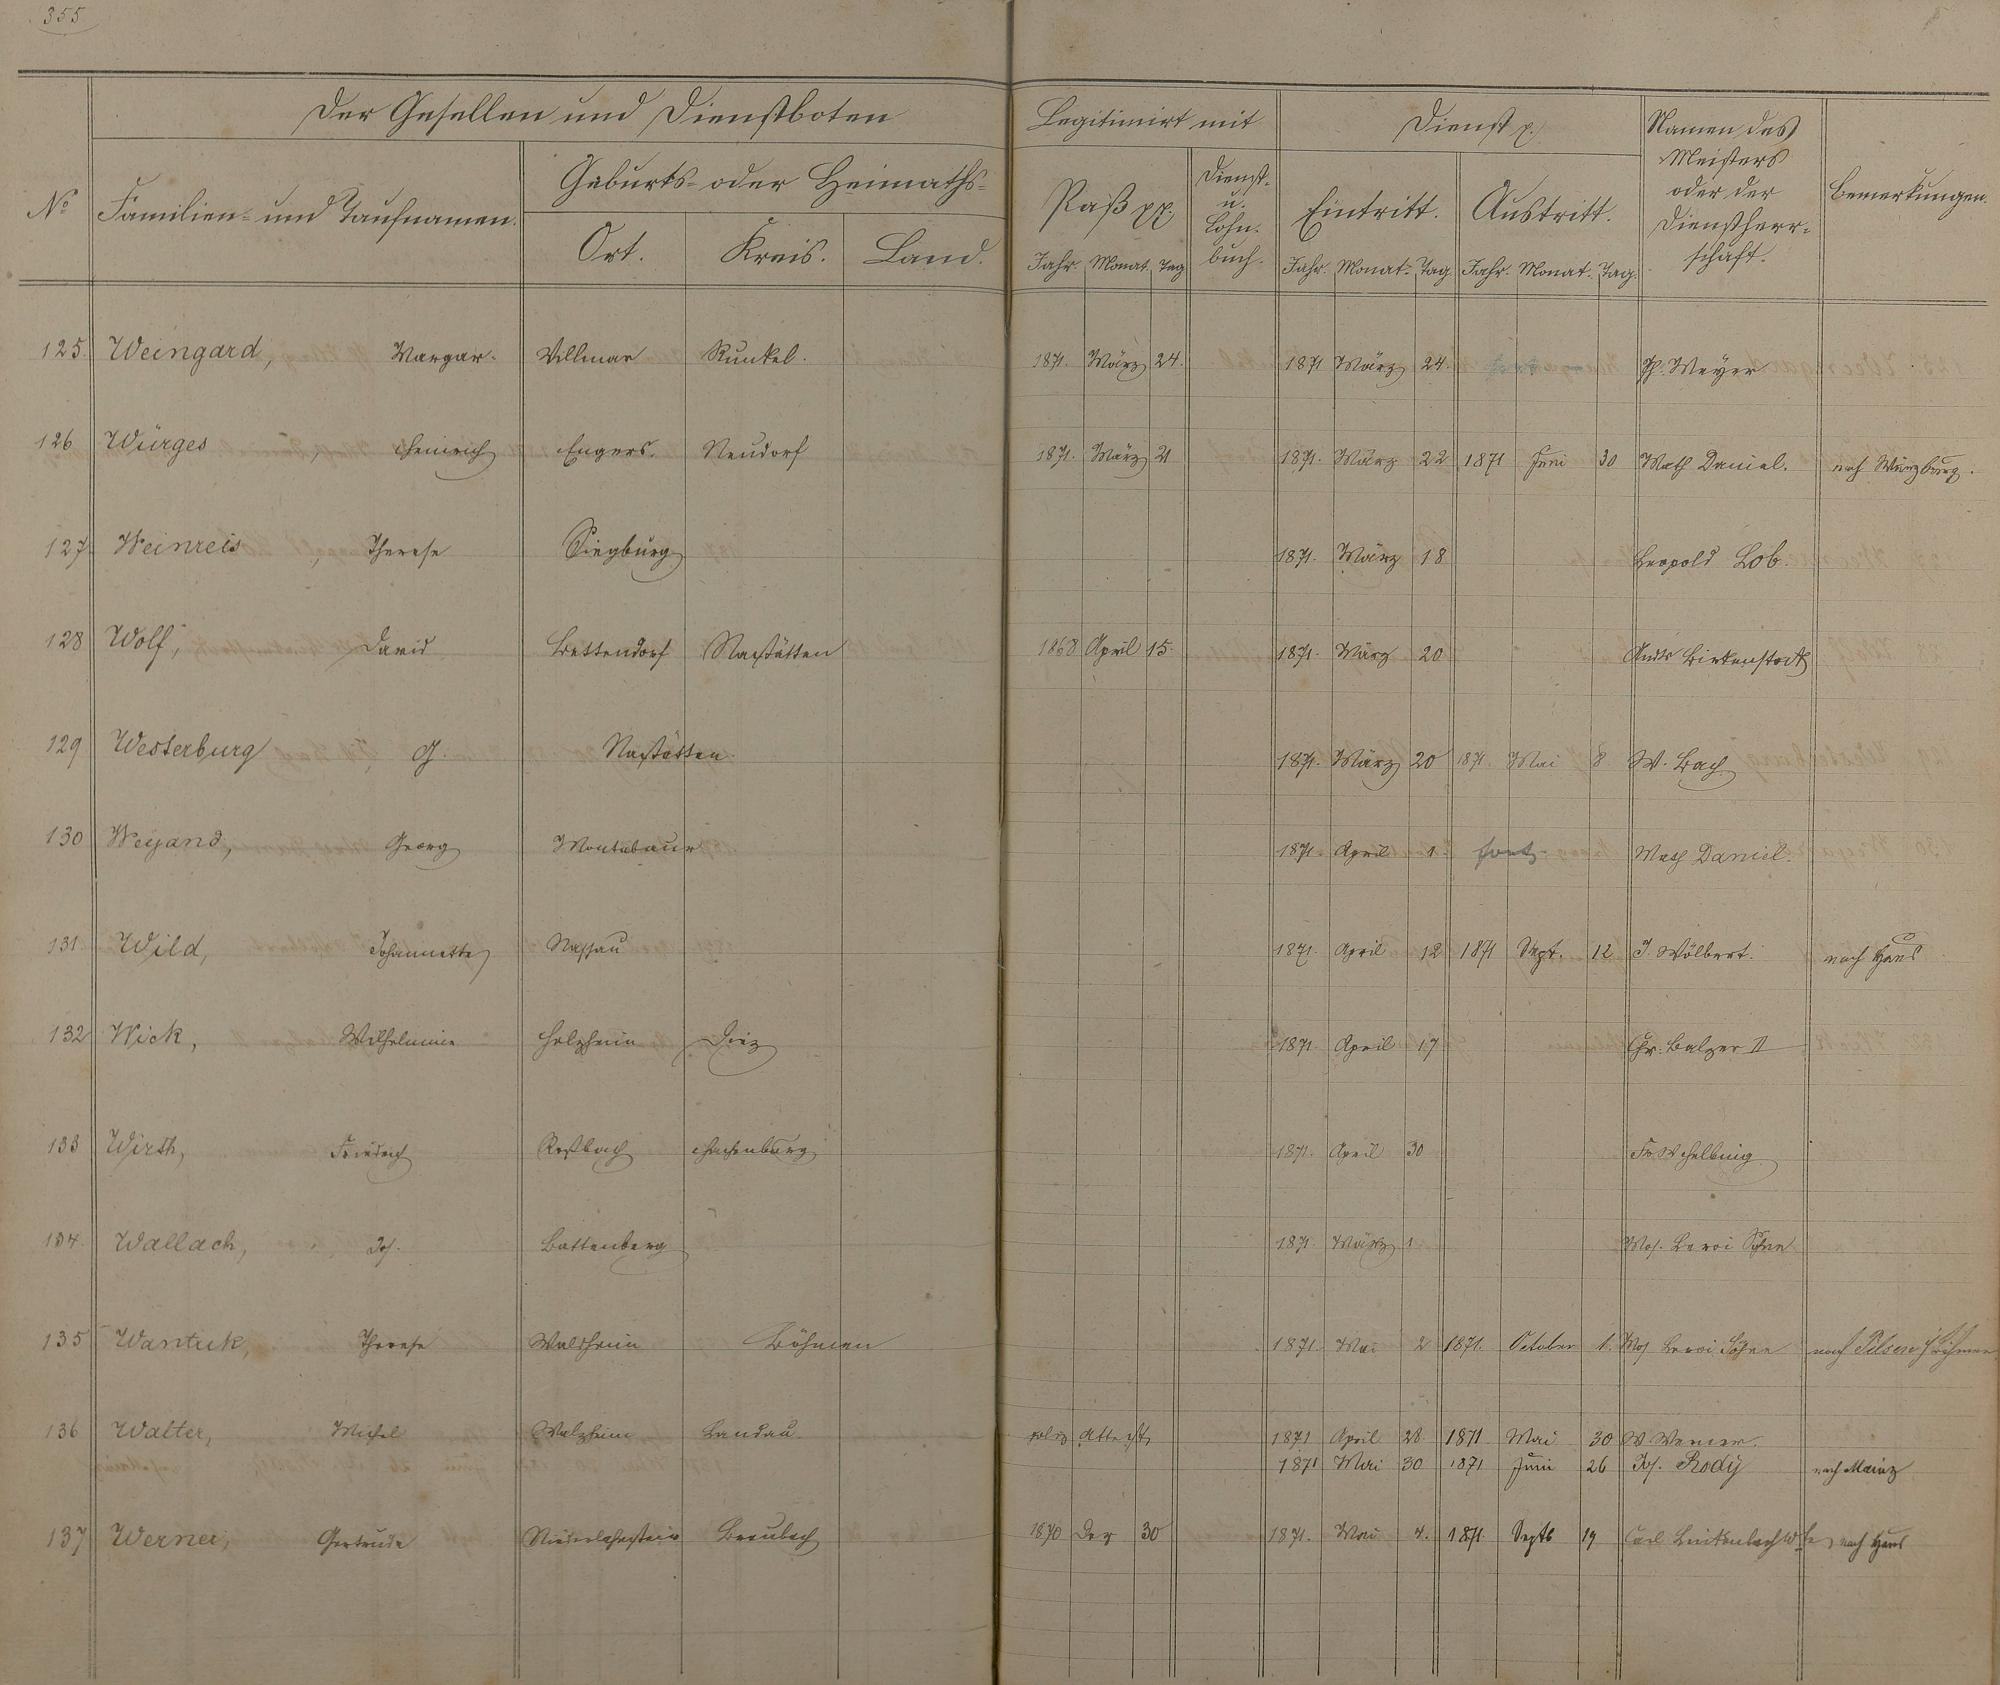 355
Der Gesellen und Dienstboten
Legitimirt mit
Dienst p.
Namen des Meisters oder der Dienstherr-schaft.
Bemerkungen.
No
Familien- und Taufnamen.
Geburts- oder Heimaths-
Ort. Kreis. Land.
Paß pp.
Dienst- u. Lohn-buch.
Eintritt. Austritt.
Jahr. Monat. Tag Jahr. Monat. Tag Jahr. Monat. Tag.
125. Weingard, Margar. Villmar Runkel. 1871. März 24. 1871 März 24. fort Ph. Meyer
126 Würges, Heinrich Engers. Neudorf 1871. März 21 1871. März 22 1871 Juni 30 Math Daniel. nach Würzburg.
127 Weinreis, Therese Siegburg 1871. März 18 Leopold Lob.
128 Wolf, David Bettendorf Nastätten 1868 April 15. 1871. März 20 Birkenstock
129 Westerburg, G. Nastätten. 1871. März 20 1871. Mai 8 W. Bach
130 Weyand, Georg Montabaur 1871. April 1. fort. Math Daniel.
131. Wild, Johannette Nassau 1871. April 12 1871 Sept. 12 J. Wölbert. nach Haus
132 Wick, Wilhelmine Holzheim Diez 1871 April 17 Chr. Balzer II
133 Wirth, Friedrich Roßbach Hachenburg 1871. April 30 Fr W Helbing
134. Wallach, Jos. Battenberg 1871 März 1 Mos. Leroi Söhne
135 Wantuk, Therese Waldheim Böhmen 1871. Mai 2 1871. October 1. Mos Leroi Söhne nach Pilsen i/Böhmen
136 Walter, Michel Walzheim Landau. poliz Attest 1871 April 28 1871 Mai 30 W Werner.
1871 Mai 30 1871 Juni 26 Jos. Rody nach Mainz
137 Werner, Gertrude Niederlahnstein Braubach 1870 Dez 30 1871. Mai 4. 1871 Septb 19 Carl nach Haus